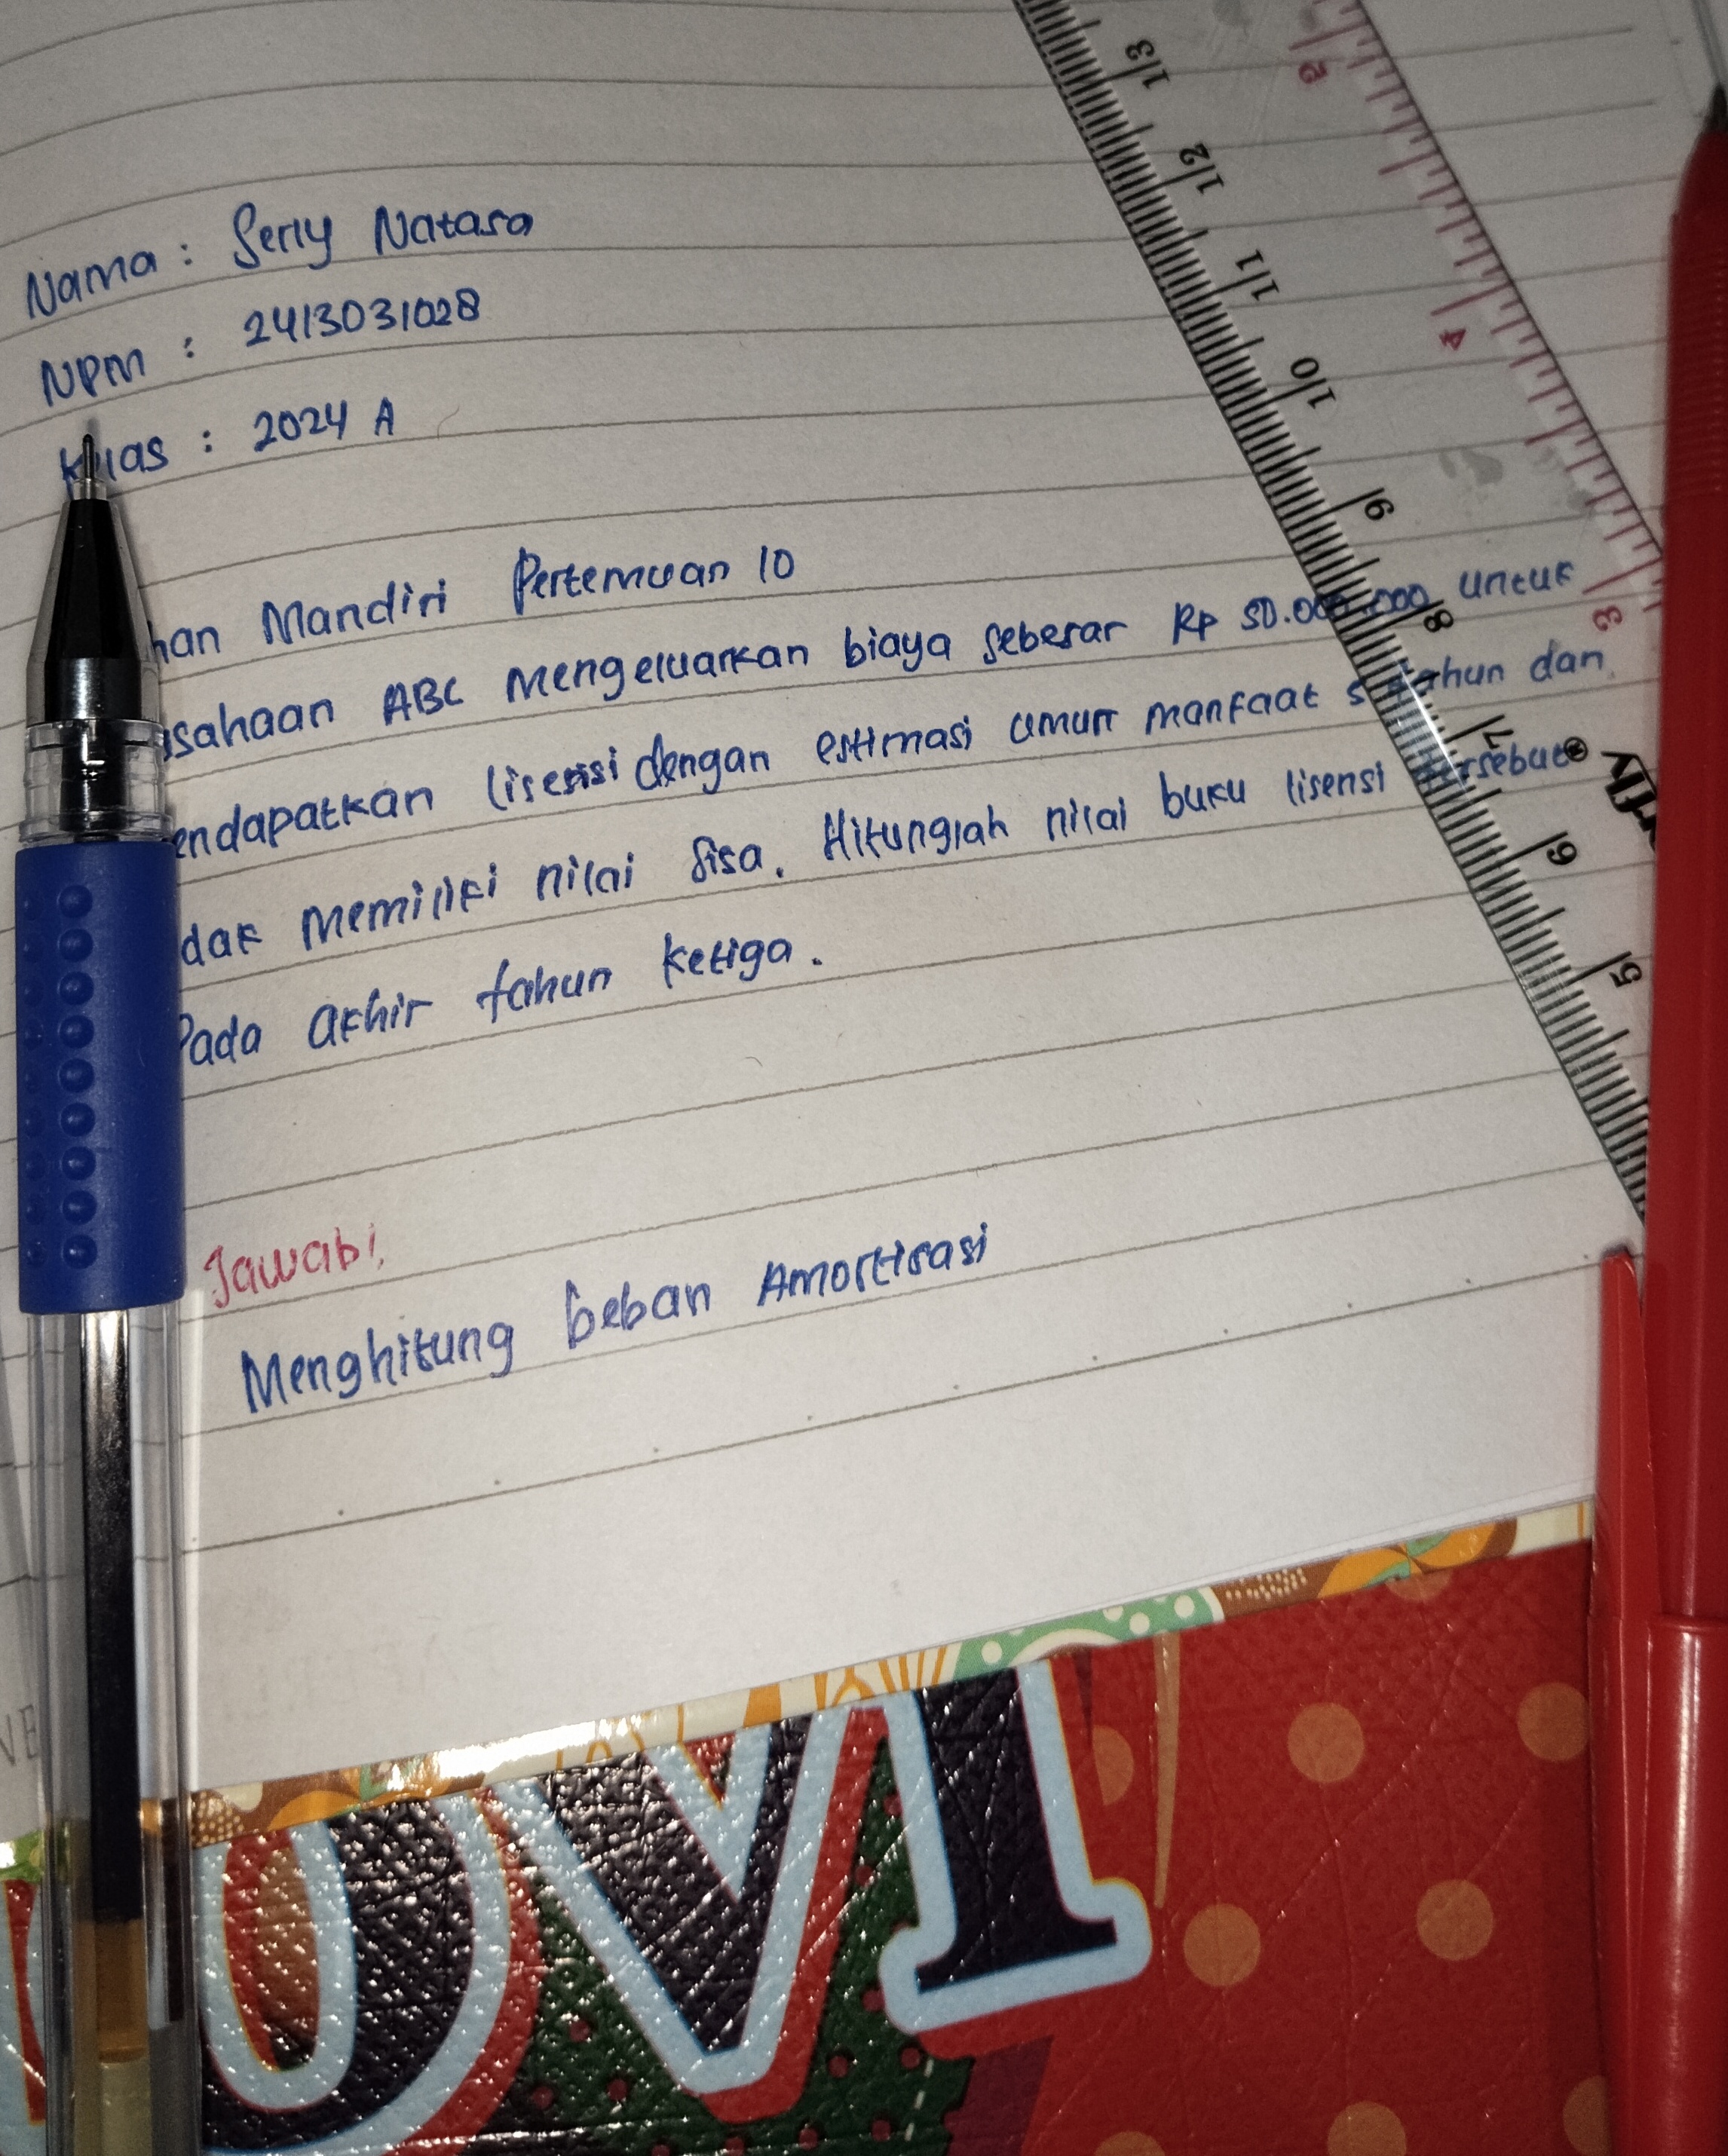 Nama : Serly Natasa
NPM : 2413031028
: 2024 A
Mandiri Pertemuan 10
ABC mengeluarkan biaya sebesar Rp 50.000.000 untuk
lisensi dengan estimasi umur manfaat 5 tahun dan
memiliki nilai sisa. Hitunglah nilai buku lisensi tersebut
Pada akhir tahun ketiga.
Jawab:
Menghitung beban Amortisasi
13
12
11
10
9
8
7
6
5
2
4
3
OVI